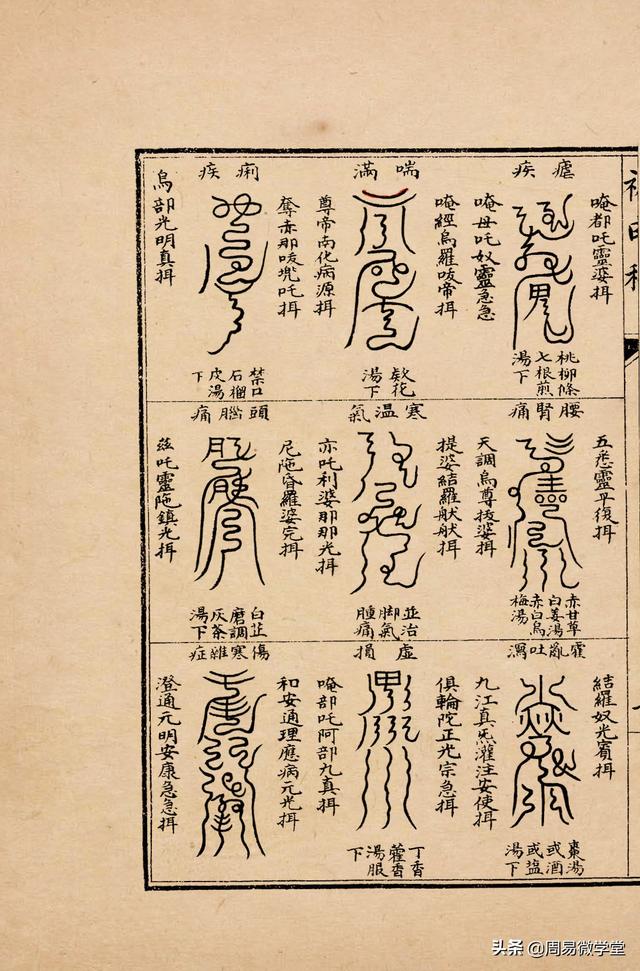 瘧疾
唵都吒靈婆揖
唵母吒奴靈急急
桃柳條
七根煎
湯下
喘滿
唵經烏羅咹帝揖
尊帝南化病源揖
欵花
湯下
痢疾
奪赤那咹兠吒揖
烏部光明真揖
禁口
石榴
皮湯
下
腰腎痛
五悉靈平復揖
天調烏尊抜婆揖
赤甘草
白姜湯
赤白烏
梅湯
寒溫氣
提婆結羅般般揖
亦吒利婆那那光揖
並治
脚氣
腫痛
頭腦痛
尼陁昏羅婆完揖
茲吒靈陁鎮光揖
白芷
磨調
灰茶
湯下
霍亂吐瀉
結羅奴光賓揖
九江真炁灌注安使揖
棗湯
或酒
或盐
湯下
虛損
俱輪陀正光宗急揖
唵部吒阿部九真揖
丁香
藿香
湯服
下
傷寒雜症
和安通理應病元光揖
澄通元明安康急急揖
头条 @周易微学堂